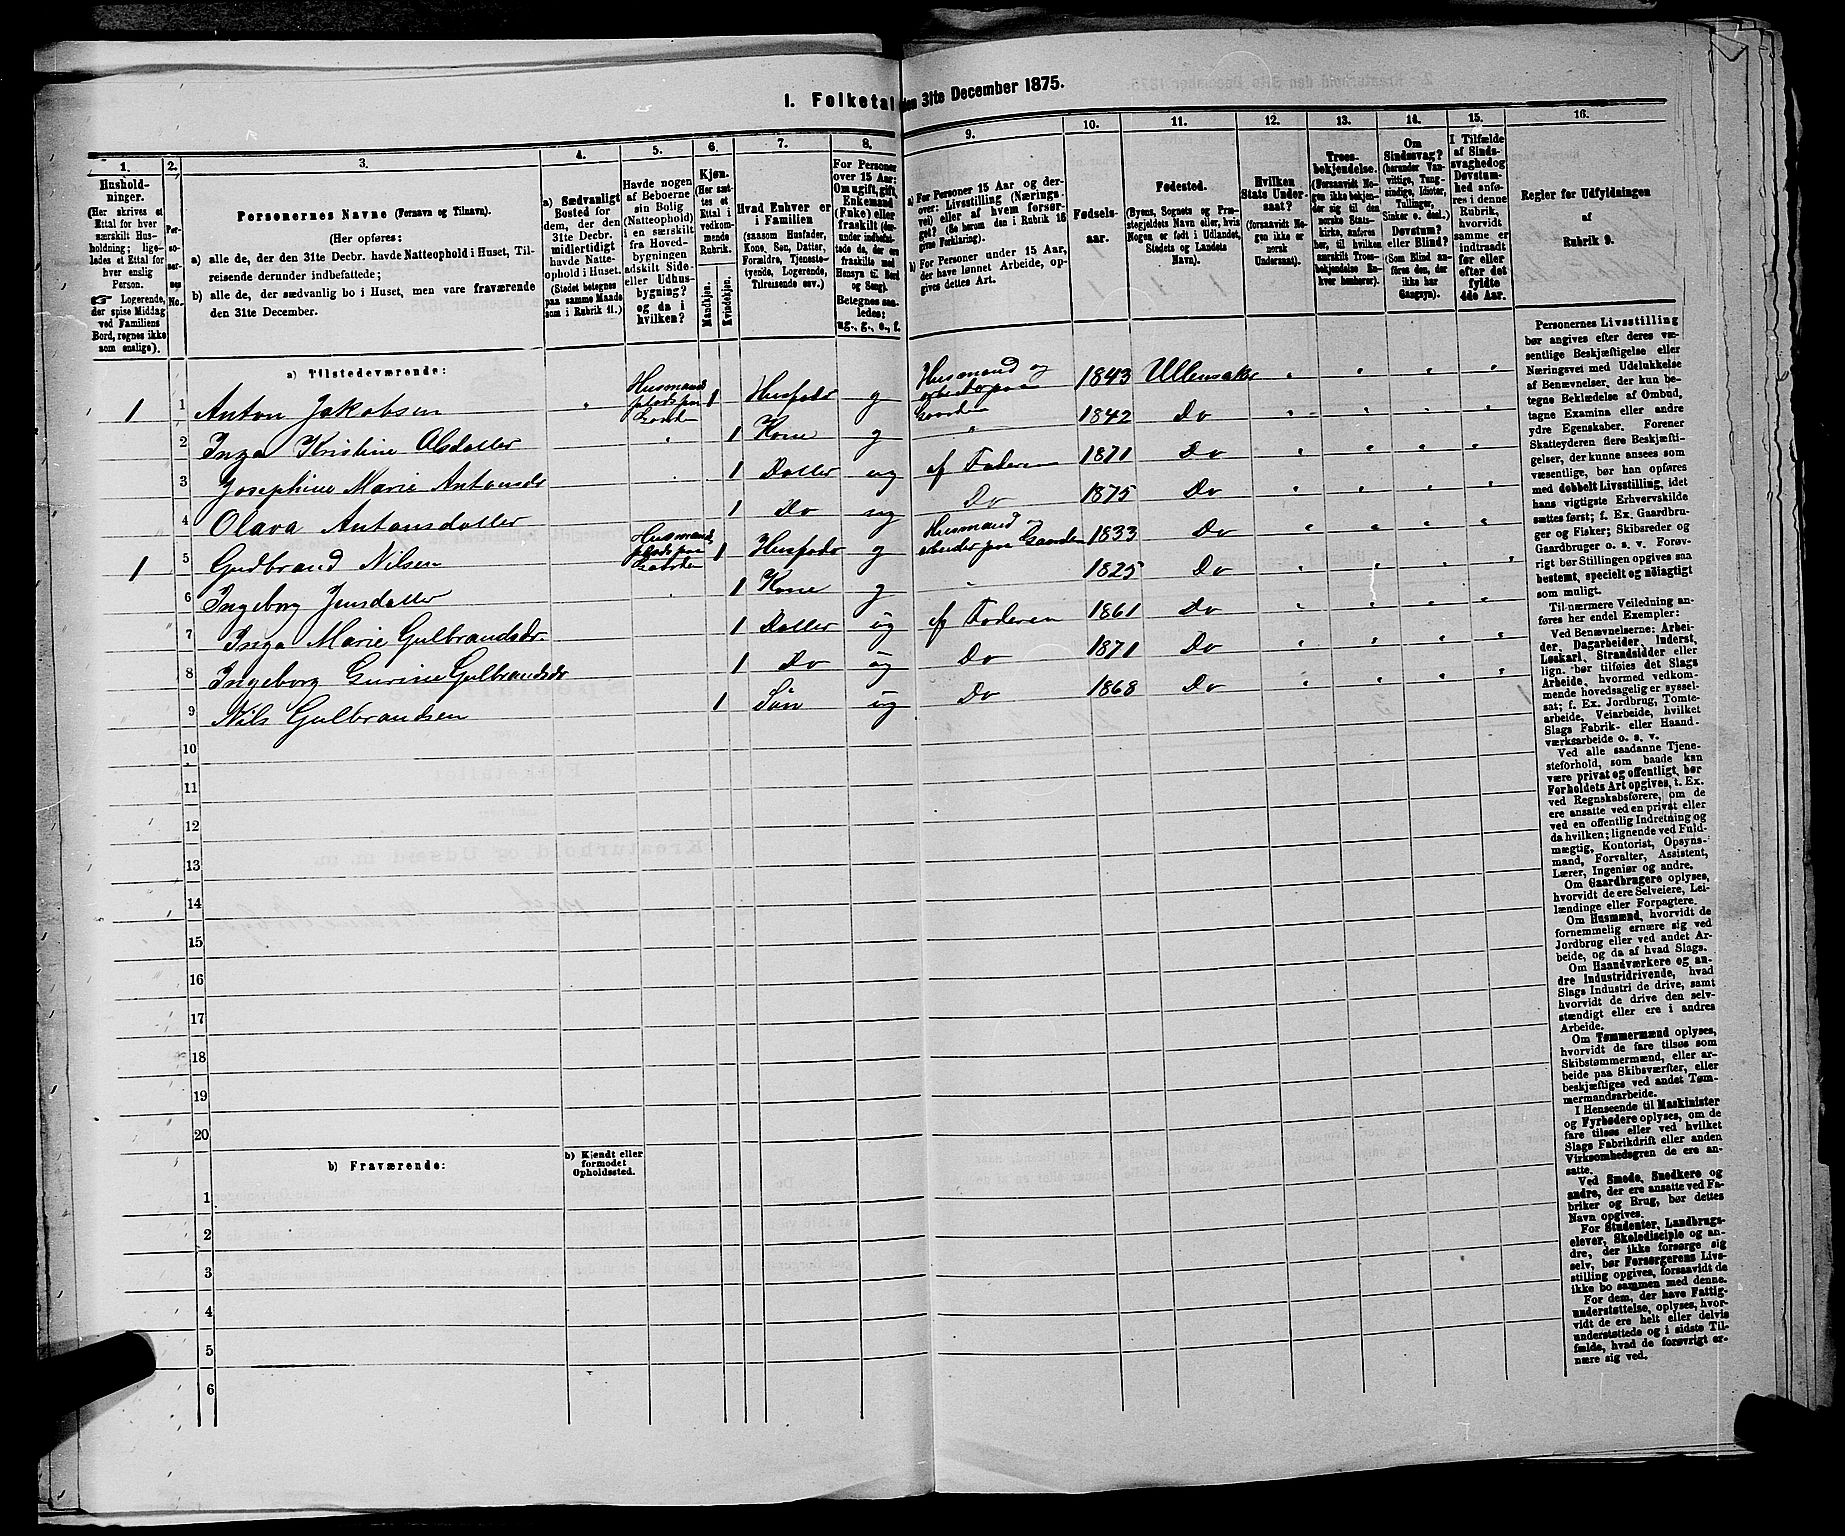 I. Folketal den 31te December 1875.
1. 2. 3. 4. 5. 6. 7. 8. 9. 10. 11. 12. 13. 14. 15. 16.
Hushold-
ninger.
(Her skrives et
Ettal for hver
særskilt Hus-
holdning; lige-
ledes et Ettal for
hver enslig
Person.
☞ Logerende,
der spise Middag
ved Familiens
Bord, regnes ikke
som enslige).
Per-
so-
ner-
nes
No.
Personernes Navne (Fornavn og Tilnavn).
(Her opføres:
a) alle de, der den 31te Decbr. havde Natteophold i Huset, Til-
reisende derunder indbefattede;
b) alle de, der sædvanlig bo i Huset, men vare fraværende
den 31te December.
a) Sædvanligt
Bosted for
dem, der den
31te Decbr.
midlertidigt
havde Natte-
ophold i Huset.
(Stedet betegnes
paa samme Maade
som i Rubrik 11.)
Havde nogen
af Beboerne
sin Bolig
(Natteophold)
i en særskilt
fra Hoved-
bygningen
adskilt Side-
eller Udhus-
bygning?
og da i
hvilken?
Kjøn.
(Her sæt-
tes et
Ettal i
vedkom-
mende
Rubrik.
Mandkjøn.
Kvindekjøn.
Hvad Enhver er
i Familien
(saasom Husfader,
Kone, Søn, Datter,
Forældre, Tjeneste-
tyende, Logerende,
Tilreisende osv.)
For Personer
over 15 Aar:
Om ugift, gift,
Enkemand
(Enke) eller
fraskilt (der-
under indbefat-
tede de, der ere
fraskilte med
Hensyn til Bord
og Seng).
Betegnes saa-
ledes:
ug., g., e., f.
a) For Personer 15 Aar og der-
over: Livsstilling (Nærings-
vei) eller af hvem forsør-
get? (Se herom den i Rubrik 16
givne Forklaring).
b) For Personer under 15 Aar,
der have lønnet Arbeide, op-
gives dettes Art.
Fødsels-
aar.
Fødested.
(Byens, Sognets og Præ-
stegjeldets Navn eller, hvis
Nogen er født i Udlandet,
Stedets og Landets
Navn).
Hvilken
Stats Under-
saat?
(forsaavidt No-
gen ikke er
norsk
Undersaat).
Troes-
bekjendelse.
(Forsaavidt No-
gen ikke bekjen-
der sig til den
norske Stats-
kirke, anføres
her, til hvilken
særskilt Troes-
bekjendelse En-
hver henhører).
Om
Sindssvag?
(herunder Van-
vittige, Tung-
sindige, Idioter,
Tullinger,
Sinker o. desl.)
Døvstum?
eller Blind?
(Som Blind an-
føres den, der
ikke har
Gangsyn).
I Tilfælde
af Sinds-
svaghed og
Døvstum-
hed anfø-
res i denne
Rubrik,
hvorvidt
samme er
indtraadt
før eller
efter det
fyldte
4de Aar.
Regler for Udfyldningen
af
Rubrik 9.
a) Tilstedeværende:
1 1 Anton Jakobsen " Husmands plads paa Gaarden 1 Husfader g Husmand og arbeider paa Gaarden 1843 Ullensaker " " " "
2 Inga Kristine Olsdatter " 1 Kone g " 1842 Do " " " "
3 Josephine Marie Antonsdr 1 Datter ug af Faderen 1871 Do " " " "
4 Olava Antonsdatter 1 Do ug Do 1875 Do " " " "
1 5 Gudbrand Nilsen Husmands plads paa Gaarden 1 Husfader g Husmand arbeider paa Gaarden 1833 Do " " " "
6 Ingeborg Jensdatter " 1 Kone g " 1825 Do " " " "
7 Inga Marie Gulbrandsdr 1 Datter ug af Faderen 1861 Do " " " "
8 Ingeborg Gurine Gulbrandsdr 1 Do ug Do 1871 Do " " " "
9 Nils Gulbrandsen 1 Søn ug Do 1868 Do " " " "
10
11
12
13
14
15
16
17
18
19
20
b) Fraværende:
b) Kjendt eller
formodet
Opholdssted.
1
2
3
4
5
6
Personernes Livsstilling
bør angives efter deres væ-
sentlige Beskjæftigelse eller
Næringsvei med Udelukkelse
af Benævnelser, der kun be-
tegne Beklædelse af Ombud,
tagne Examina eller andre
ydre Egenskaber. Forener
Skatteyderen flere Beskjæfti-
gelser, der kunne ansees som
væsentlige, bør han opføres
med dobbelt Livsstilling, idet
hans vigtigste Erhvervskilde
sættes først; f. Ex. Gaardbru-
ger og Fisker; Skibsreder og
Gaardbruger o. s. v. Forøv-
rigt bør Stillingen opgives saa
bestemt, specielt og nøiagtigt
som muligt.
Til nærmere Veiledning an-
føres her endel Exempler:
Ved Benævnelserne: Arbei-
der, Dagarbeider, Inderst,
Løskarl, Strandsidder eller
lign. bør tilføies det Slags
Arbeide, hvormed vedkom-
mende hovedsagelig er syssel-
sat; f. Ex. Jordbrug, Tomte-
arbeide, Veiarbeide, hvilket
Slags Fabrik- eller Haand-
værksarbeide o. s. v.
Ved alle saadanne Tjene-
steforhold, som baade kan
være privat og offentligt, bør
Forholdets Art opgives, t. Ex.
ved Regnskabsførere, om de
ere ansatte ved en privat eller
ved en offentlig Indretning og
da hvilken; lignende ved Fuld-
mægtig, Kontorist, Opsyns-
mand, Forvalter, Assistent,
Lærer, Ingeniør og andre.
Om Gaardbrugere oplyses,
hvorvidt de ere Selveiere, Lei-
lændinge eller Forpagtere.
Om Husmænd, hvorvidt de
fornemmelig ernære sig ved
Jordbrug eller ved andet Ar-
beide, og da af hvad Slags.
Om Haandværkere og an-
dre Industridrivende, hvad
Slags Industri de drive, samt
hvorvidt de drive den selv-
stændigt eller ere i andres
Arbeide.
Om Tømmermænd oplyses,
hvorvidt de fare tilsøs som
Skibstømmermænd, eller ar-
beide paa Skibsværfter, eller
beskjæftiges ved andet Tøm-
mermandsarbeide.
I Henseende til Maskinister
og Fyrbødere oplyses, om de
fare tilsøs eller ved hvilket
Slags Fabrikdrift eller anden
Virksomhedsgren de ere an-
satte.
Ved Smede, Snedkere og
andre, der ere ansatte ved Fa-
briker og Brug, bør dettes
Navn opgives.
For Studenter, Landbrugs-
elever, Skoledisciple og an-
dre, der ikke forsørge sig
selv, bør Forsørgerens Livs-
stilling opgives, forsaavidt de
ikke bo sammen med denne.
For dem, der have Fattig-
understøttelse, oplyses, hvor-
vidt de ere helt eller delvis
understøttede og i sidste Til-
fælde, hvad de forøvrigt er-
nære sig ved.